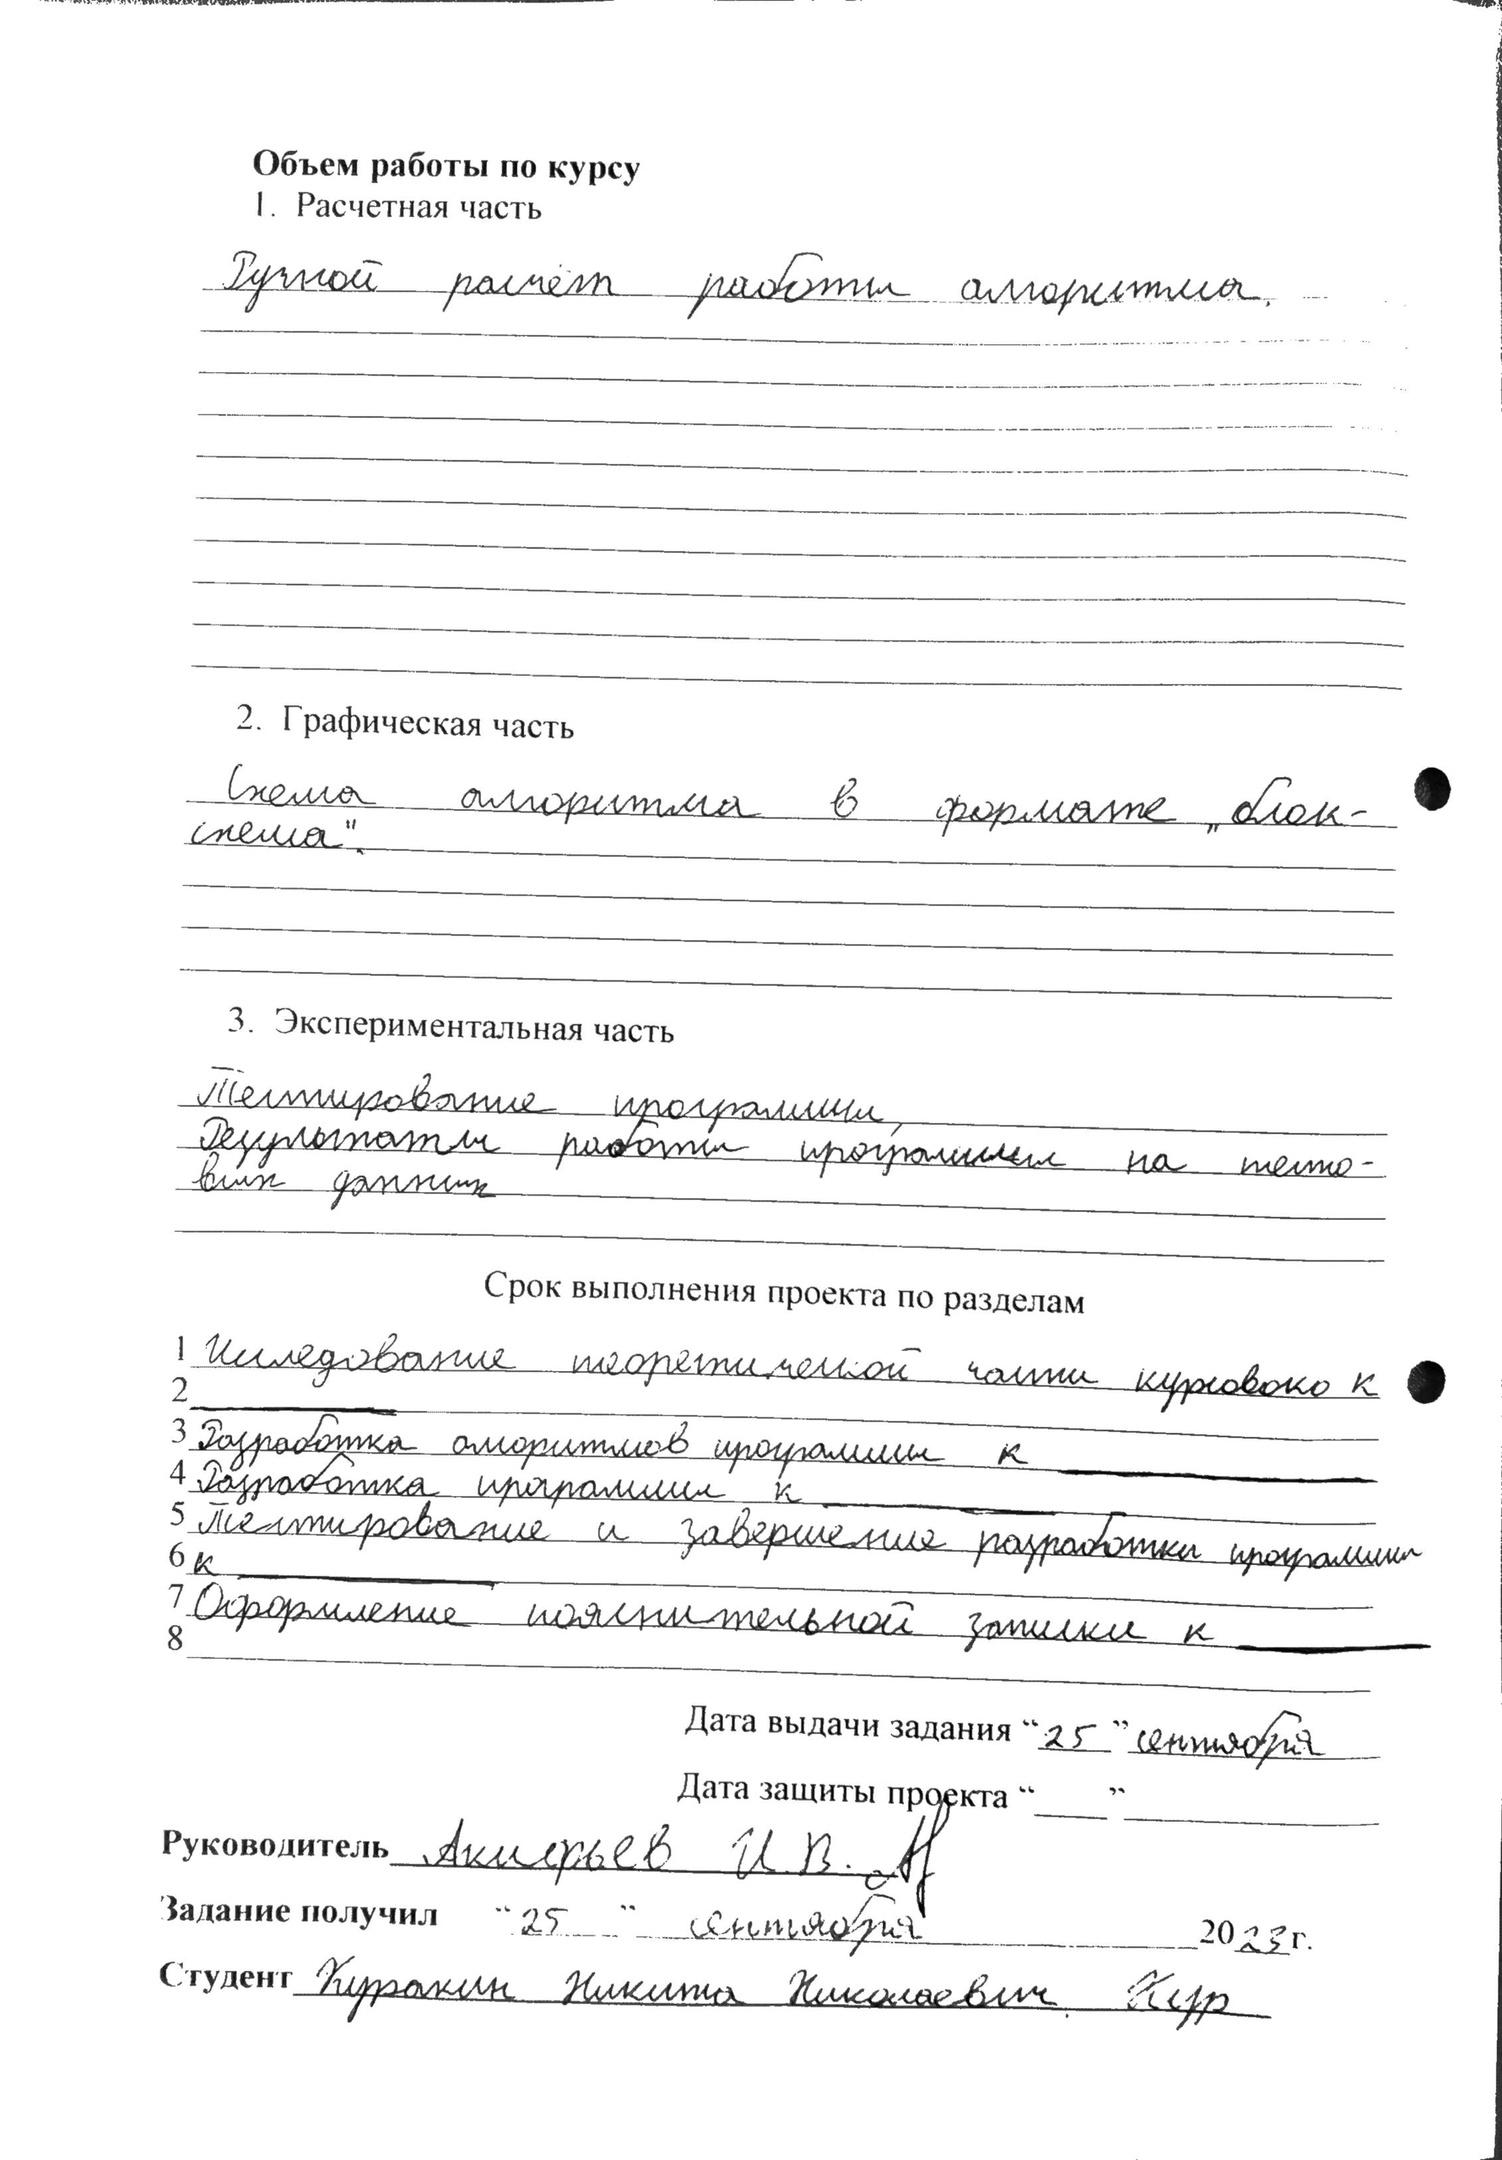 Объем работы по курсу
1. Расчетная часть
Ручной расчёт работы алгоритма.
2. Графическая часть
Схема алгоритма в формате „блок-
схема".
3. Экспериментальная часть
Тестирование программы,
Результаты работы программы на тесто-
вых данных
Срок выполнения проекта по разделам
1 Исследование теоретической части курсового к
2
3 Разработка алгоритмов программы к
4 Разработка программы к
5 Тестирование и завершение разработки программы
6 к
7 Оформление пояснительной записки к
8
Дата выдачи задания “25” сентября
Дата защиты проекта “____”
Руководитель И.В.
Задание получил “25” сентября 2023г.
Студент Куракин Никита Николаевич Кур